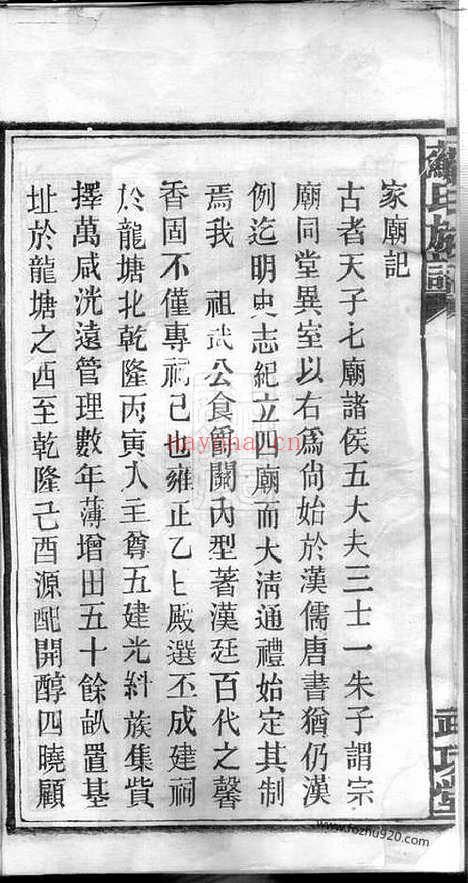 家廟記
古者天子七廟諸侯五大夫三士一朱子謂宗
廟同堂異室以右為尚始於漢儒唐書猶仍漢
例迄明史志紀立四廟而大淸通禮始定其制
焉我 祖武公食爵關內型著漢廷百代之馨
香固不僅專祠已也雍正乙巳殿選丕成建祠
於龍塘北乾隆丙寅人主尊五建光斜族集貲
擇萬咸洸遠管理數年薄增田五十餘畝置基
址於龍塘之西至乾隆己酉源配開醇四曉顧
蘇氏族譜
武功堂
haynha.cn
www.fozhu920.com